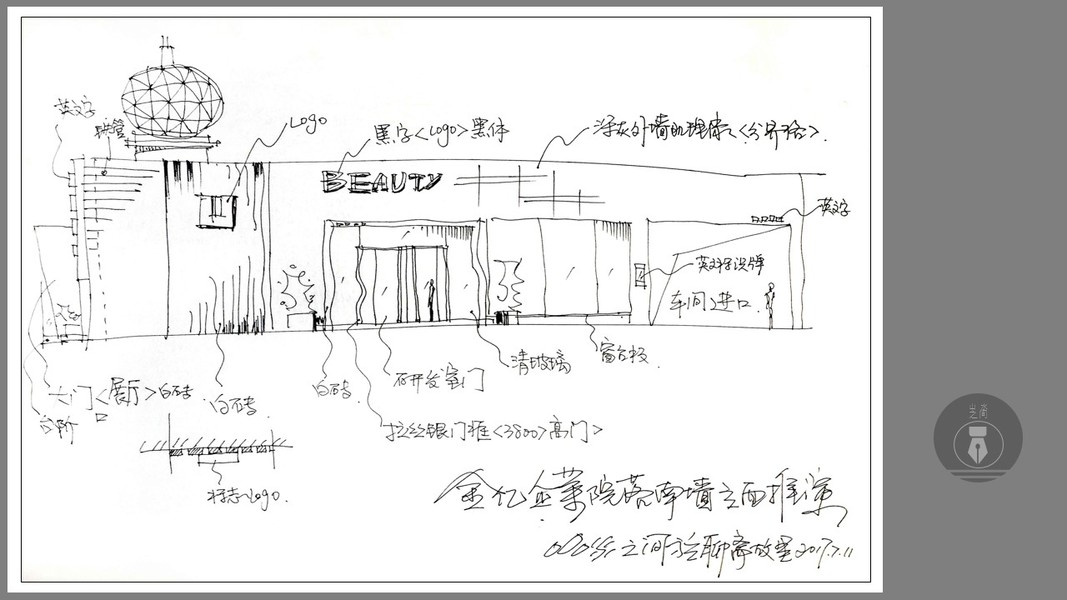 英文字
Logo
黑字<Logo>黑体
深灰外墙肌理漆<分界验>.
BEAUTY
英文字
英文标识牌
车间进口.
清玻璃
窗台板.
研开发室门
白砖.
大门<展厅>白砖
白砖.
台阶
拉丝银门框<3800>高门>
标志Logo.
金亿企业院落南墙立面推演
2017.7.11
之间